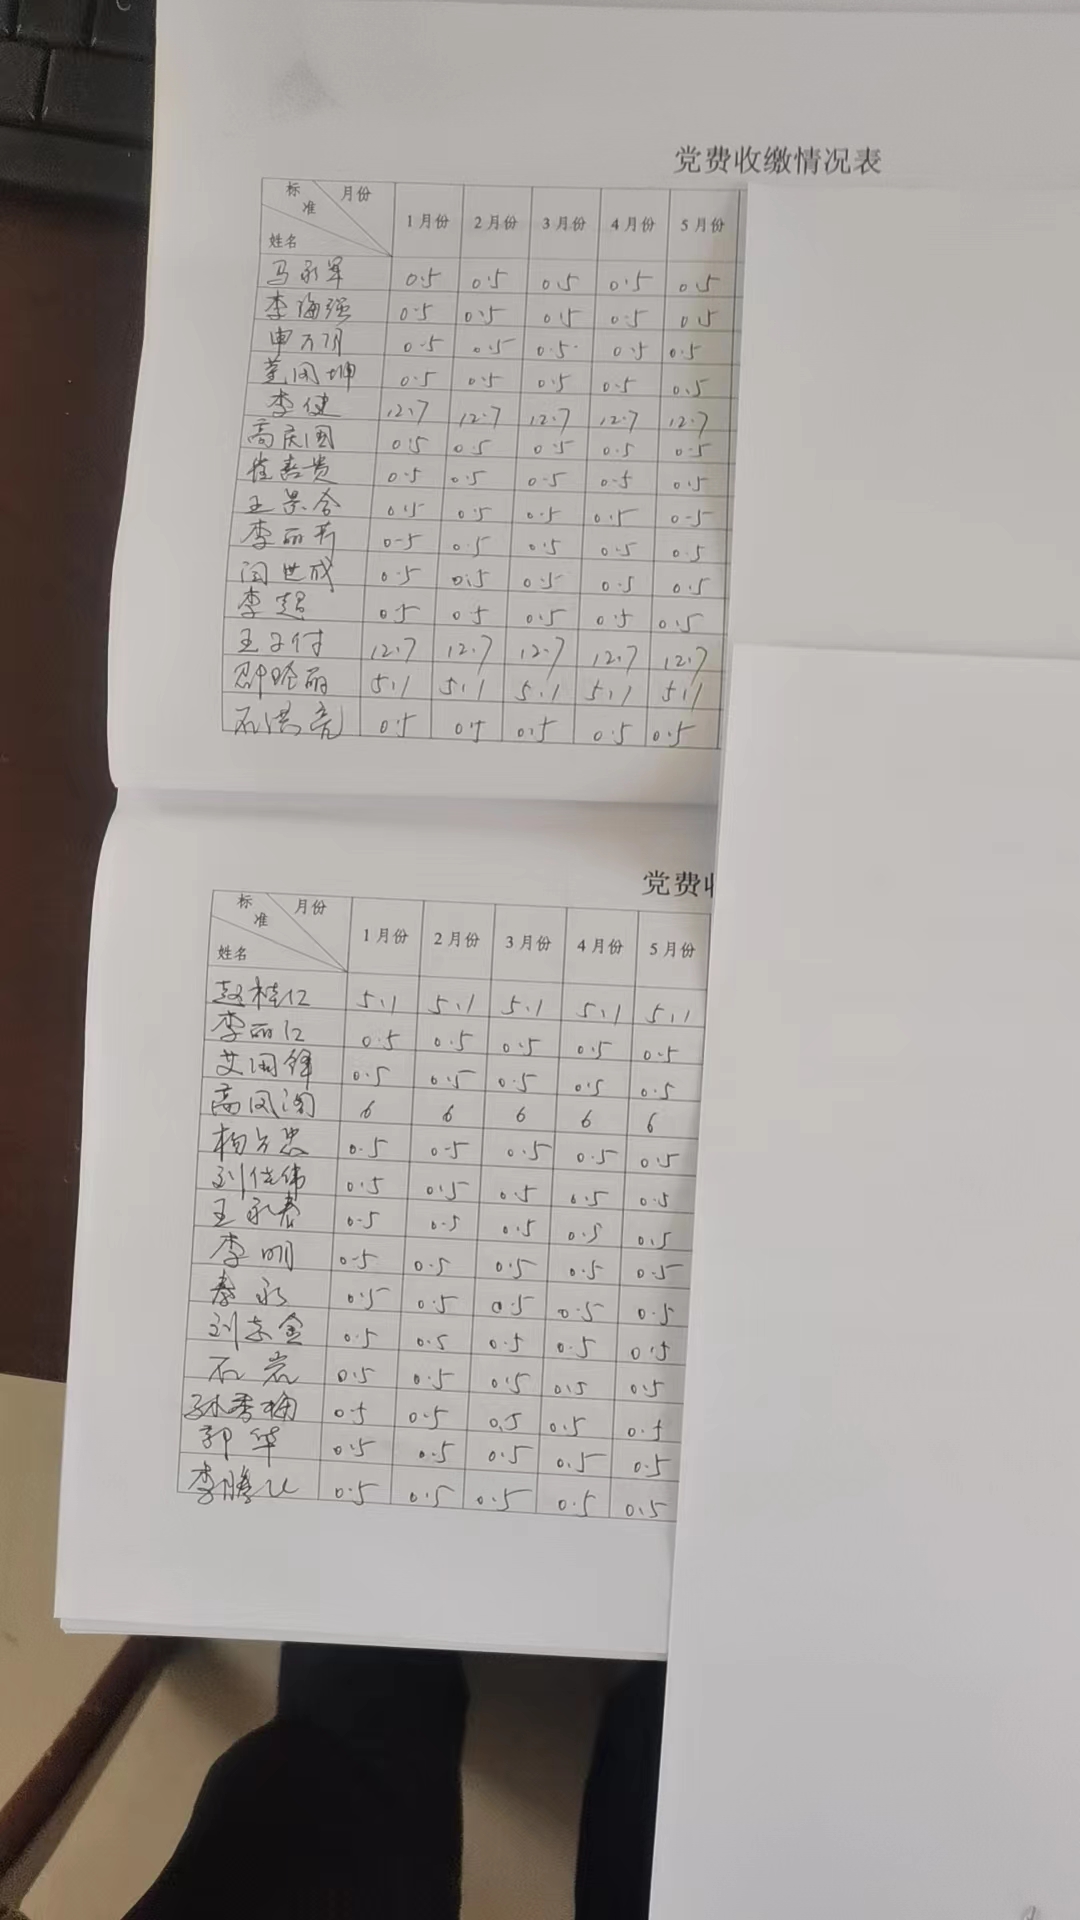 党费收缴情况表
标准 月份 姓名 1月份 2月份 3月份 4月份 5月份
马永军 0.5 0.5 0.5 0.5 0.5
李海强 0.5 0.5 0.5 0.5 0.5
申万明 0.5 0.5 0.5 0.5 0.5
0.5 0.5 0.5 0.5 0.5
李健 12.7 12.7 12.7 12.7 12.7
高庆国 0.5 0.5 0.5 0.5 0.5
崔喜贵 0.5 0.5 0.5 0.5 0.5
王景 0.5 0.5 0.5 0.5 0.5
李丽 0.5 0.5 0.5 0.5 0.5
闫世成 0.5 0.5 0.5 0.5 0.5
李超 0.5 0.5 0.5 0.5 0.5
王子付 12.7 12.7 12.7 12.7 12.7
5.1 5.1 5.1 5.1 5.1
石洪亮 0.5 0.5 0.5 0.5 0.5
党费收
标准 月份 姓名 1月份 2月份 3月份 4月份 5月份
赵桂仁 5.1 5.1 5.1 5.1 5.1
李丽仁 0.5 0.5 0.5 0.5 0.5
艾国锋 0.5 0.5 0.5 0.5 0.5
高凤阁 6 6 6 6 6
杨占忠 0.5 0.5 0.5 0.5 0.5
刘佳伟 0.5 0.5 0.5 0.5 0.5
王永春 0.5 0.5 0.5 0.5 0.5
李明 0.5 0.5 0.5 0.5 0.5
秦永 0.5 0.5 0.5 0.5 0.5
刘志金 0.5 0.5 0.5 0.5 0.5
石岩 0.5 0.5 0.5 0.5 0.5
孙秀梅 0.5 0.5 0.5 0.5 0.5
郭华 0.5 0.5 0.5 0.5 0.5
李腾飞 0.5 0.5 0.5 0.5 0.5